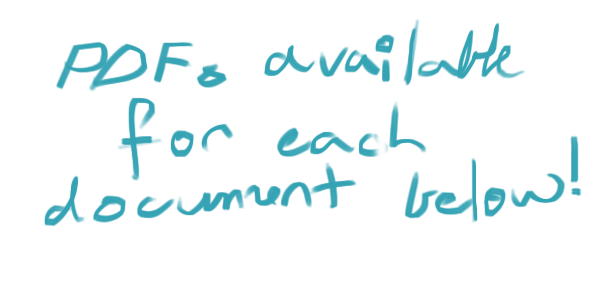 PDFs available
for each
document below!